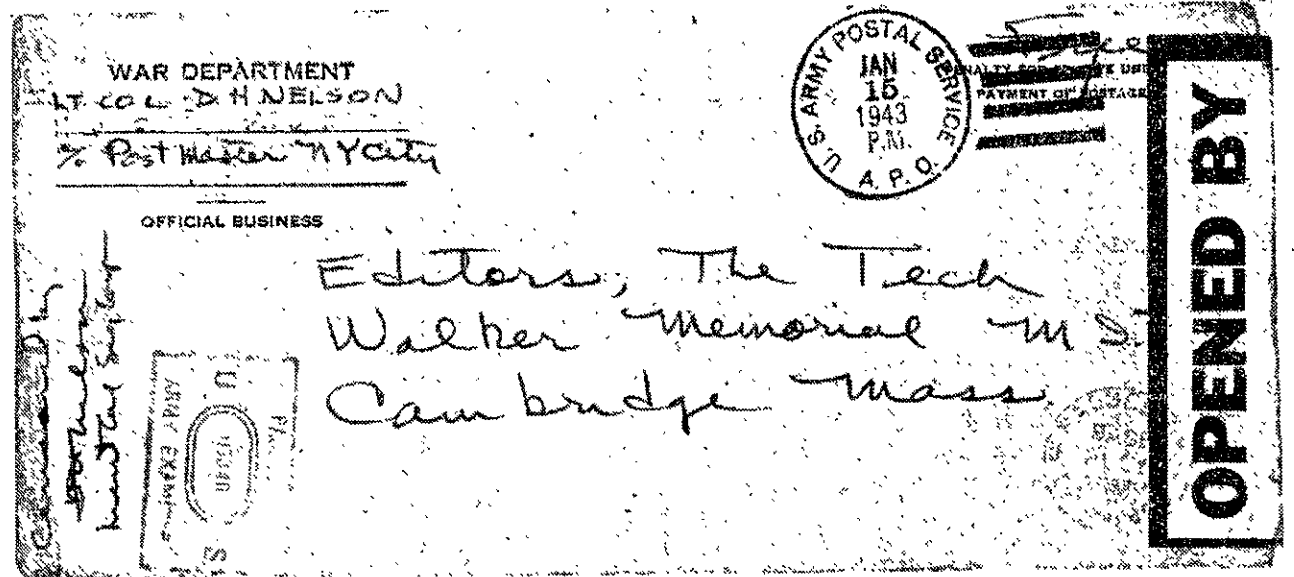 WAR DEPARTMENT
LT COL D H NELSON
% Post Master N Y City
OFFICIAL BUSINESS
U.S. ARMY POSTAL SERVICE
JAN
15
1943
P.M.
A. P. O.
Free
PAYMENT OF POSTAGE
Editors, The Tech
Walker Memorial M I T
Cambridge Mass.
Censored by
DH Nelson
Lieut Col
ARMY EXAM
U
S
OPENED BY